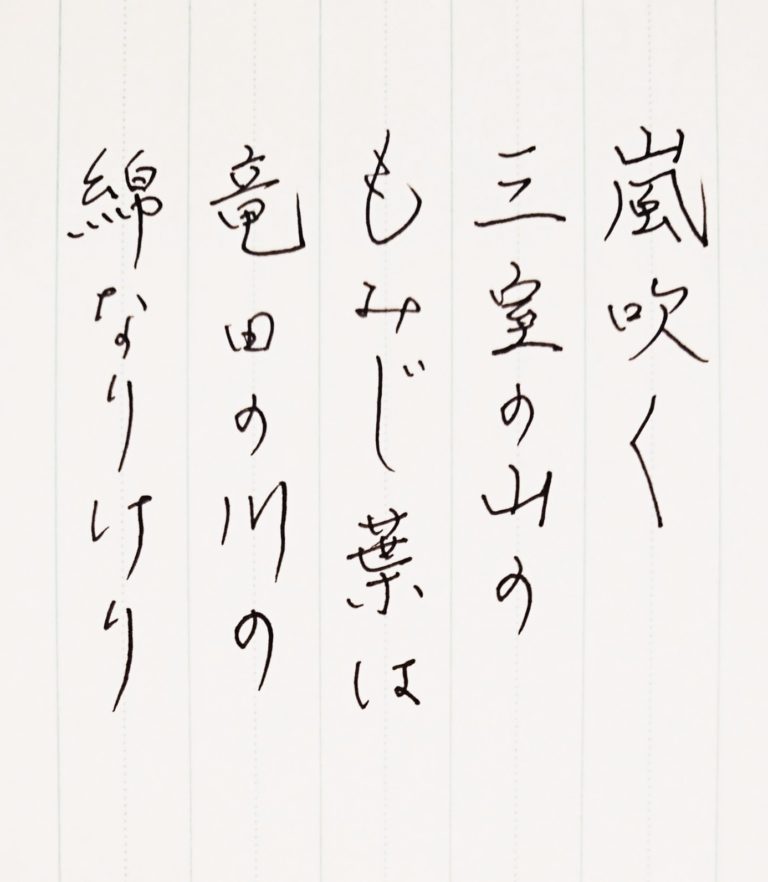 嵐吹く
三室の山の
もみじ葉は
竜田の川の
綿なりけり